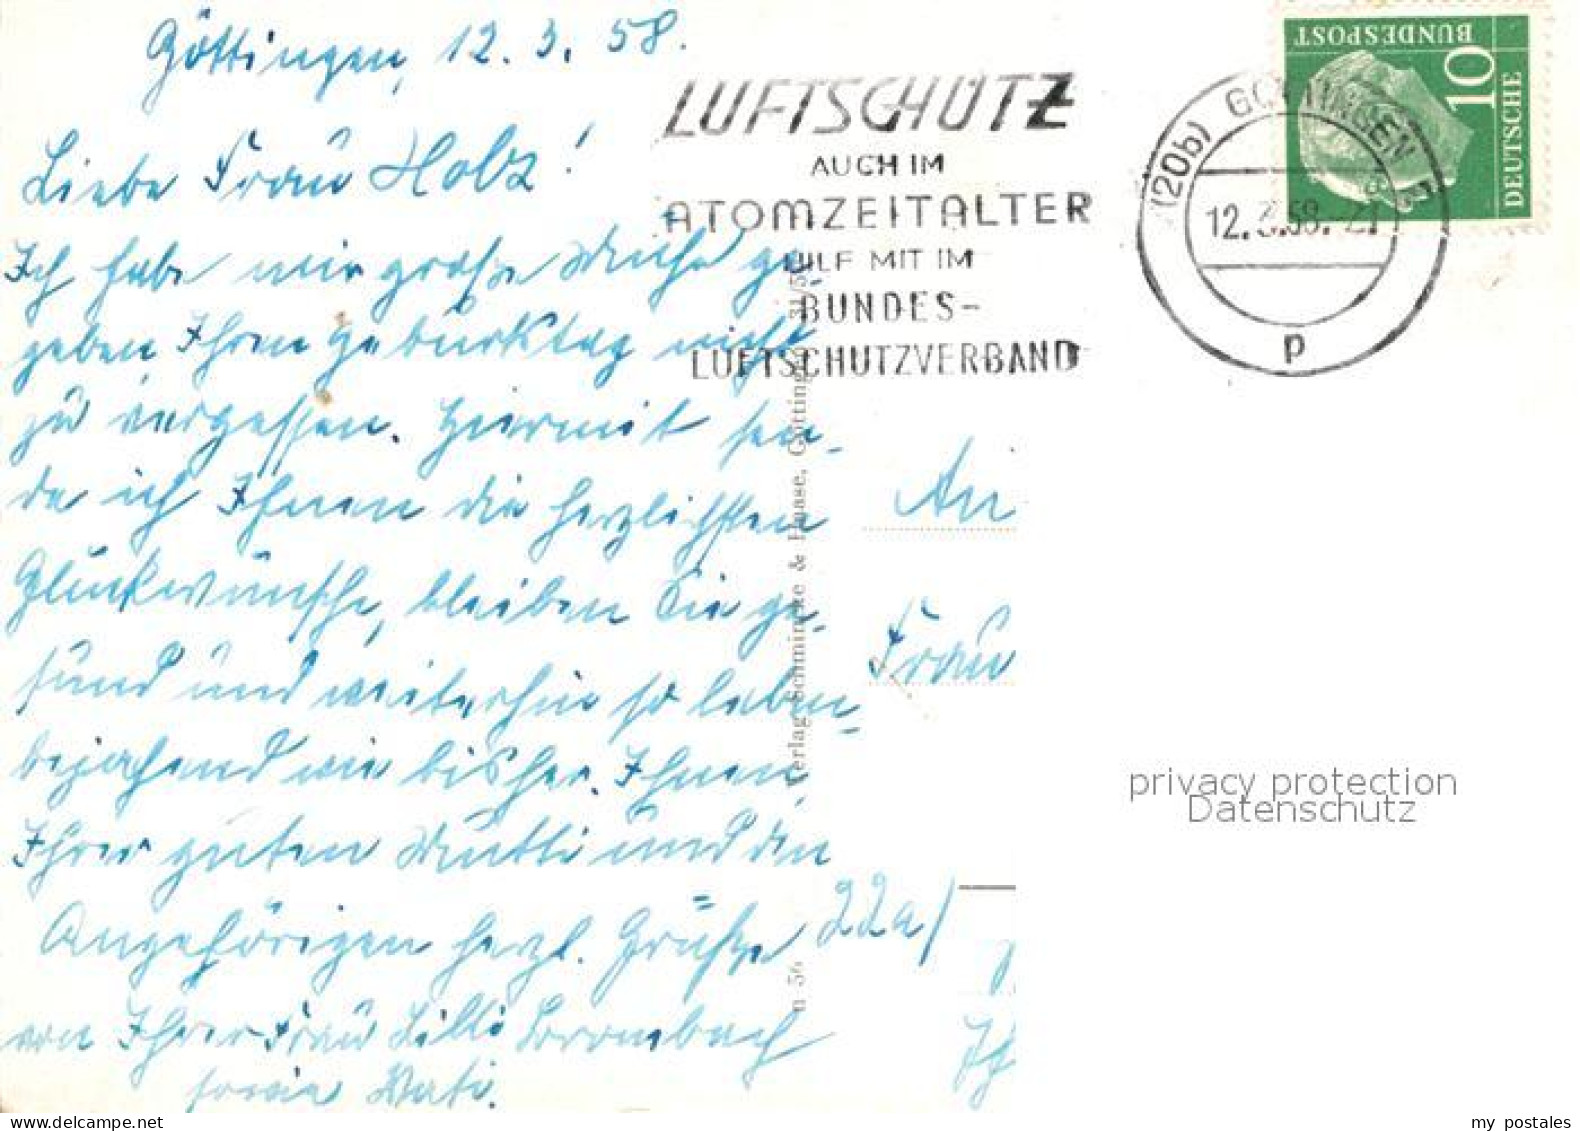 Göttingen, 12. 3. 58.
Liebe Frau Holz!
Ich habe mir große Mühe ge-
geben Ihren Geburtstag nicht
zu vergessen. Hiermit sen-
de ich Ihnen die herzlichsten
Glückwünsche, bleiben Sie ge-
sund und weiterhin so leben-
bejahend wie bisher. Ihnen,
Ihrer guten Mutti und den
Angehörigen herzl. Grüße
von Ihrer Frau Lilli
sowie
LUFTSCHUTZ
AUCH IM
ATOMZEITALTER
HILF MIT IM
BUNDES-
LUFTSCHUTZVERBAND
(20b) GÖTTINGEN
12.3.58.-21
p
DEUTSCHE
BUNDESPOST
10
Verlag Schmincke & Haase, Göttingen
n 56
An
Frau
22a/
privacy protection
Datenschutz
www.delcampe.net
my postales